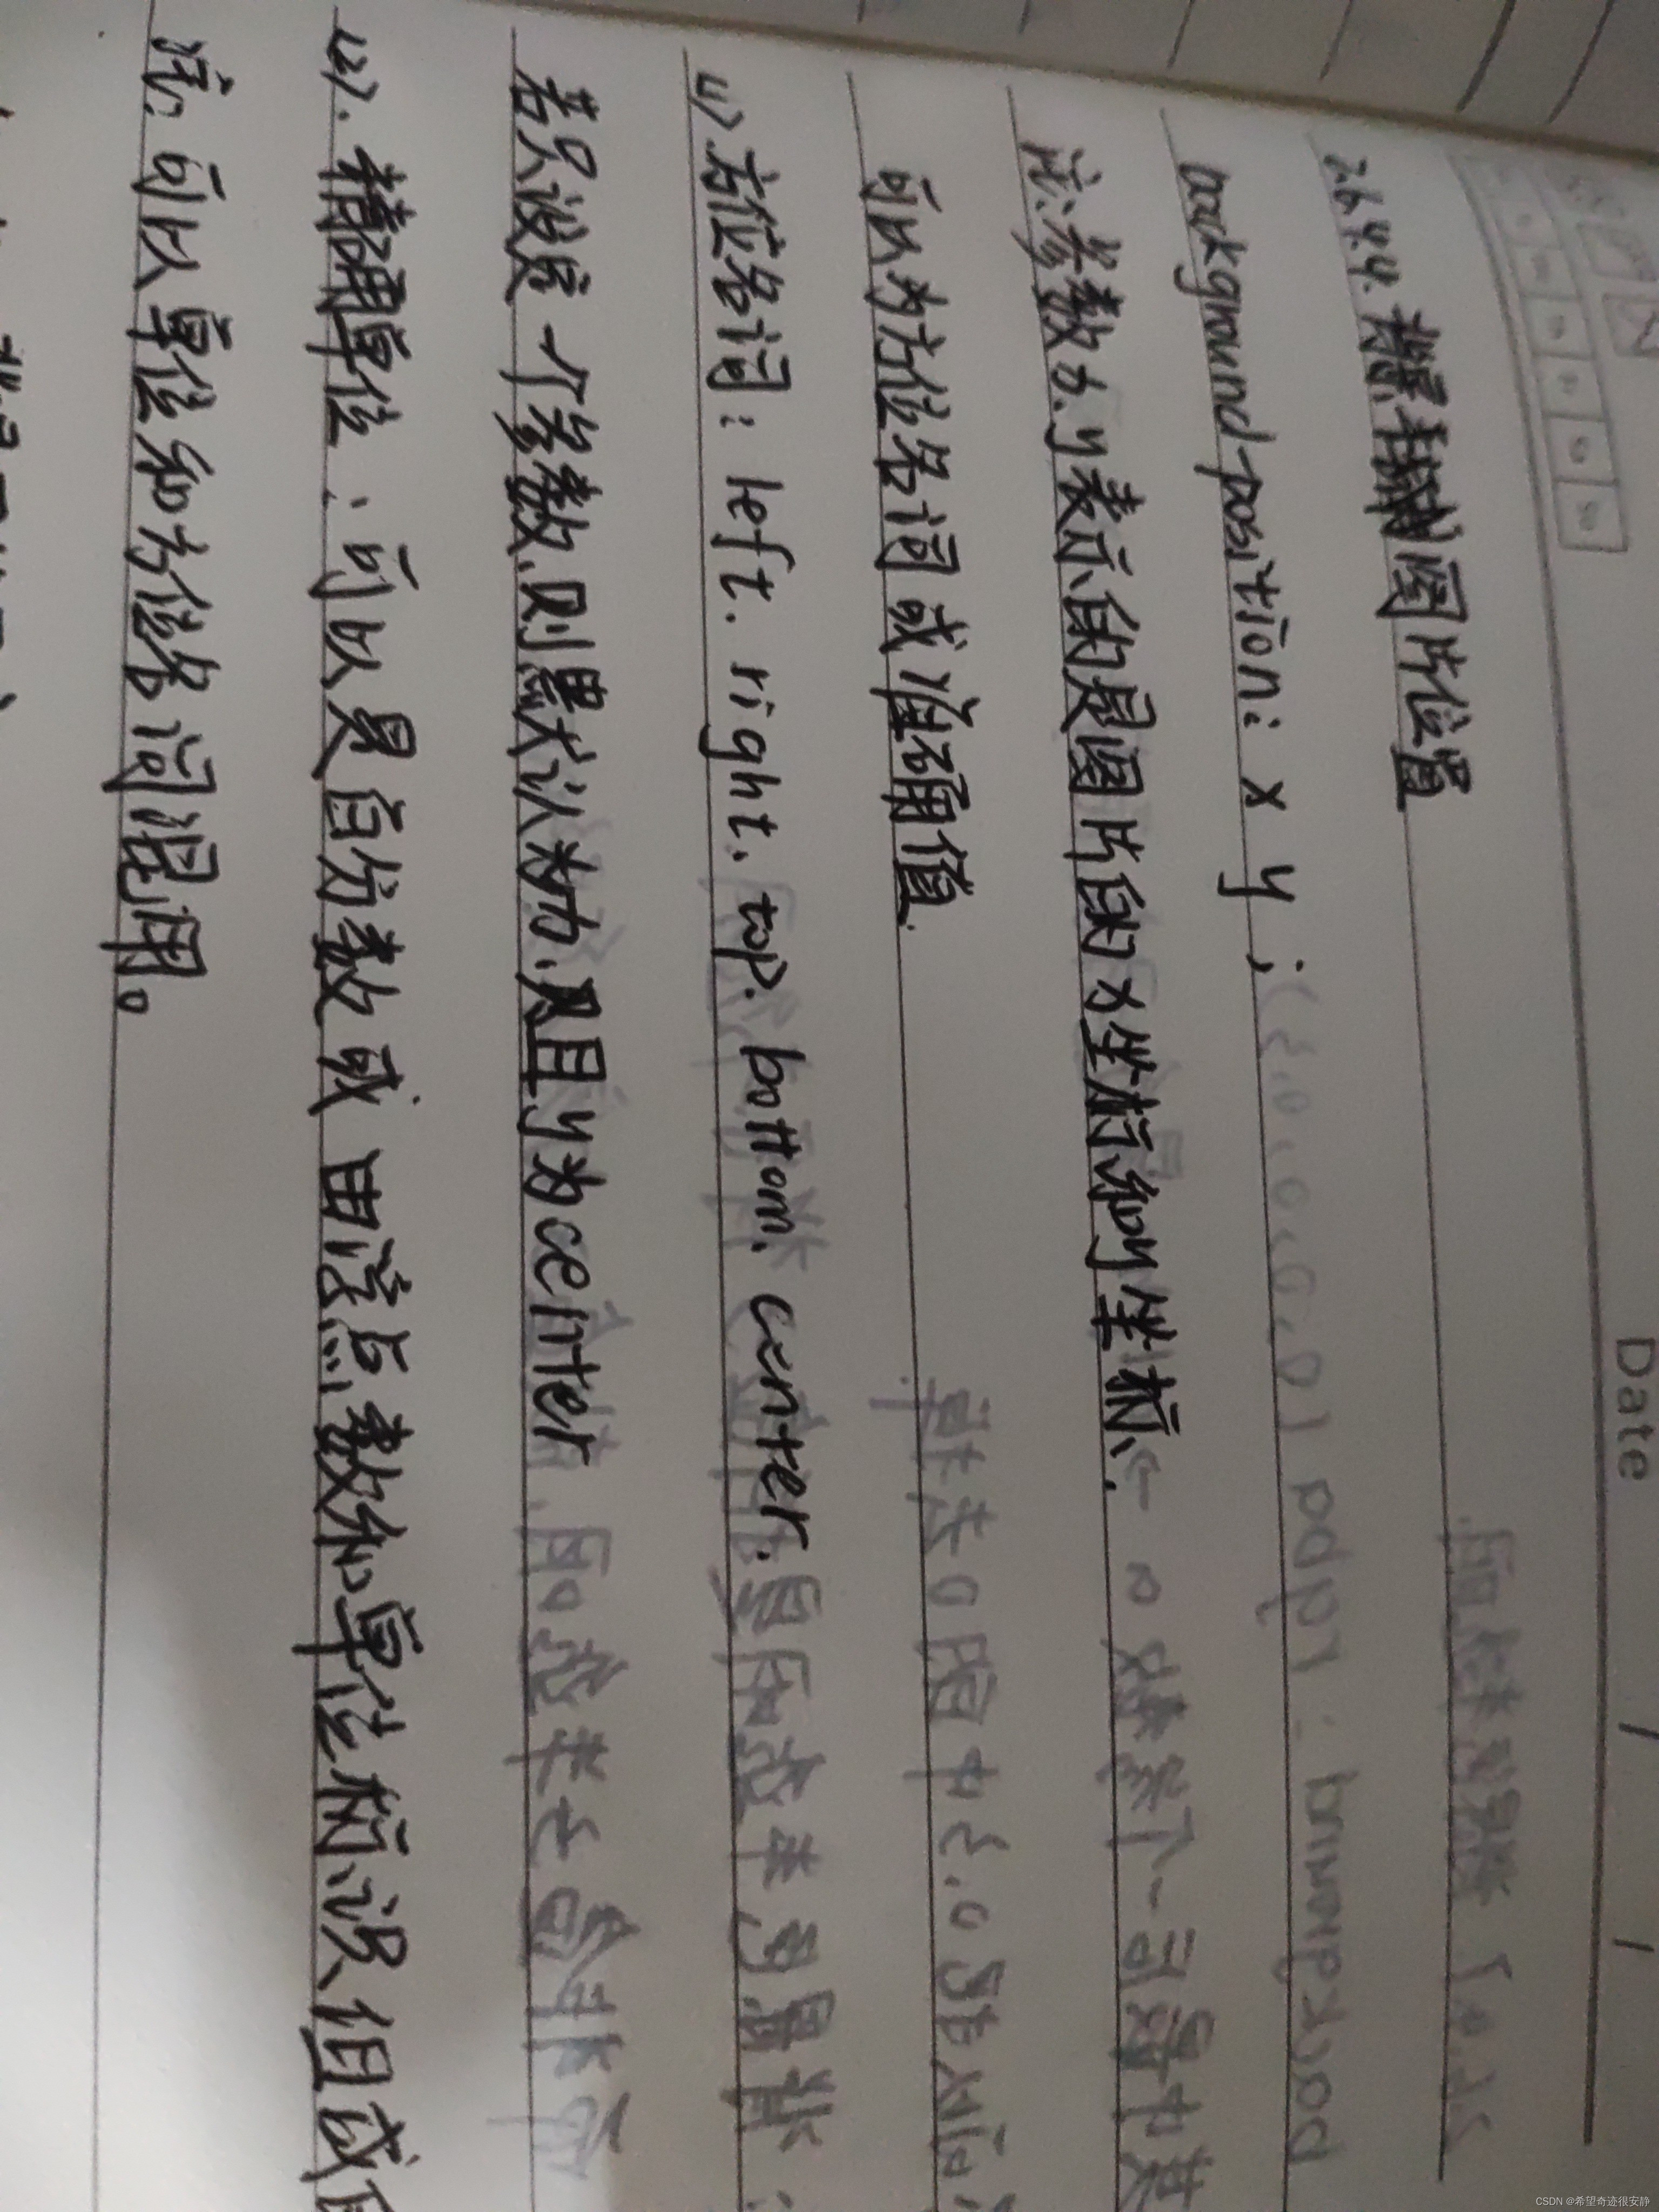 Date / /
2.6.4.4. 背景图片位置
background-position: x y ;
注:参数x.y表示的是图片的x坐标和y坐标.
可以为方位名词或准确值.
(1).方位名词: left. right. top. bottom. center.
若只设定一个参数.则默认为力.且y为center
(2). 精确单位:可以是百分数或由浮点数和单位标识组成
注:可以单位和方位名词混用。
CSDN @希望奇迹很安静